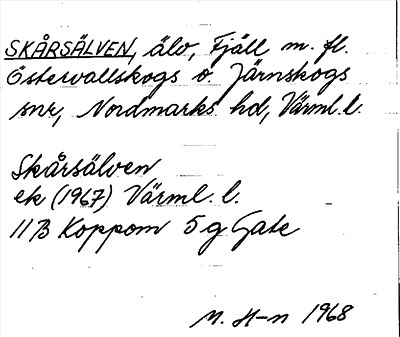 SKÅRSÄLVEN, älv, Fjäll m. fl.
Östervallskogs o. Järnskogs
snr, Nordmarks hd, Värml. l.
Skårsälven
ek (1967) Värml. l.
11B Koppom 5 g Gate
M. H-n 1968